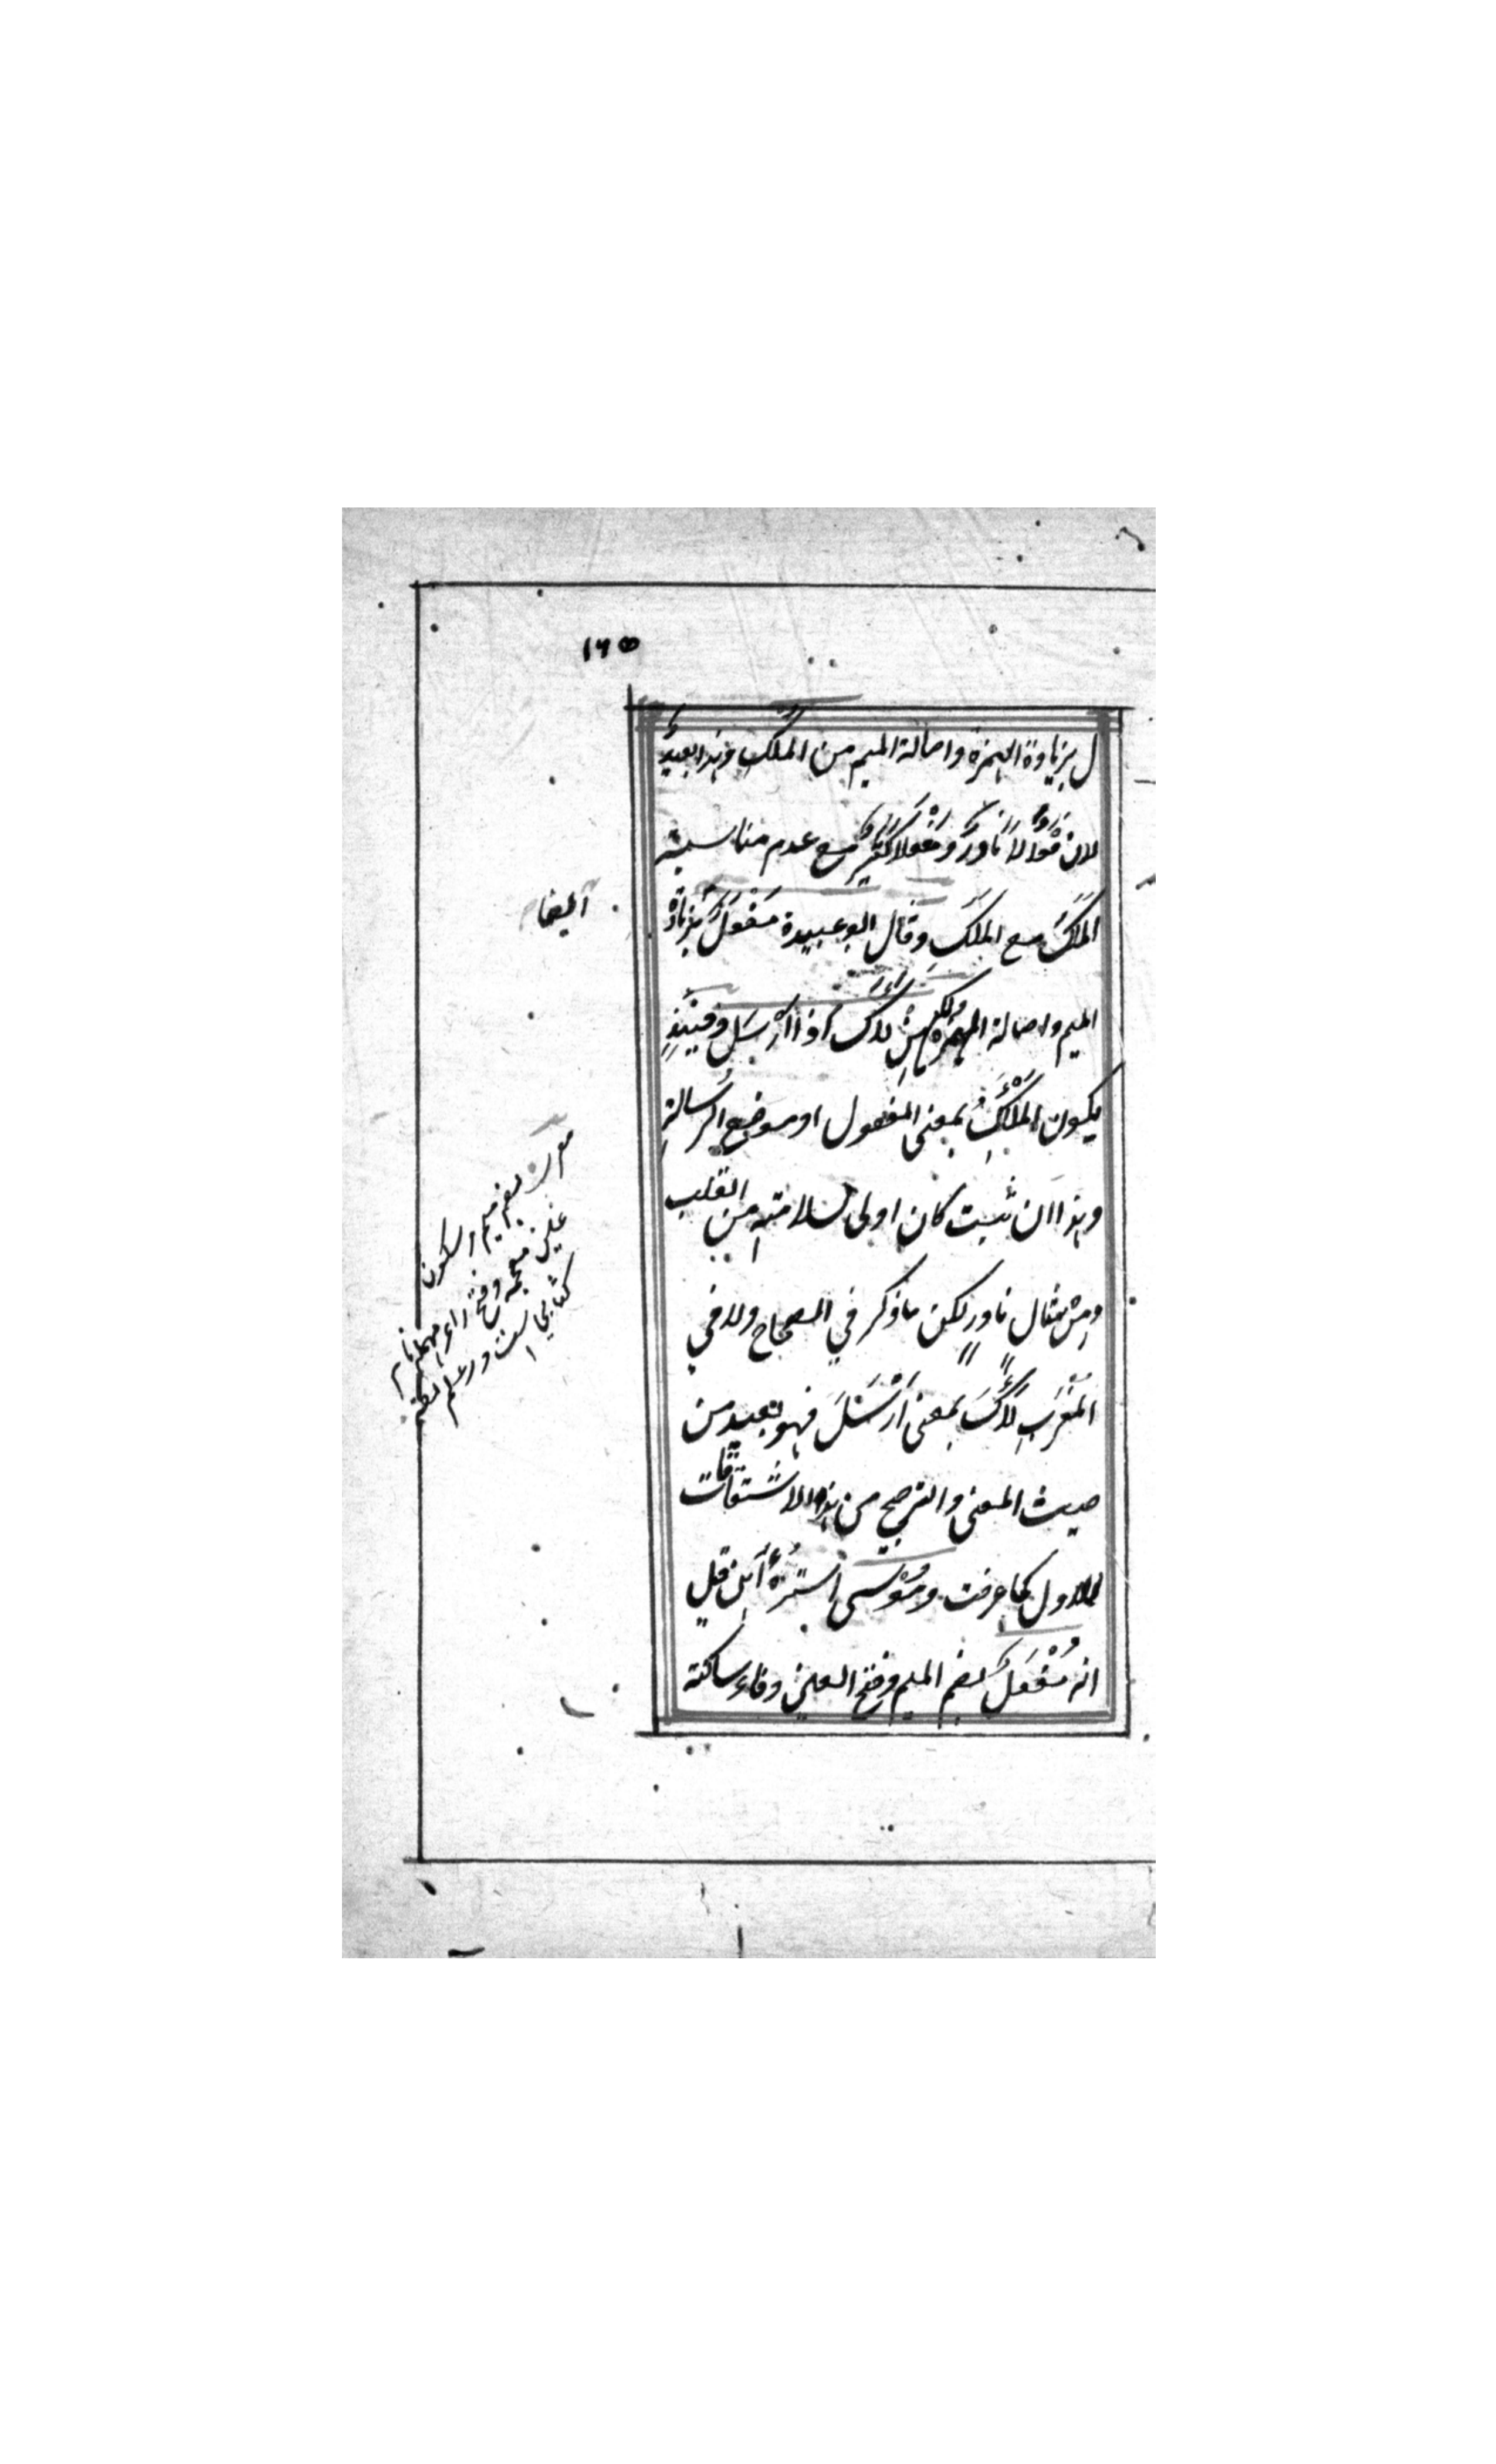 ١٦٥
ل بزيادة الهمزة واصالة الميم من المُلْكِ وهذا بعيدٌ
لان فَعْأَلاً نادرٌ ومَفْعَلا كثيرٌ مع عدم مناسبة
المَلَكُ مع المَلِكِ وقال ابو عبيدة مَفْعَلٌ بزيادة
الميم واصالة الهمزة ولكن من لَأَكَ اذا اَرْسَلَ وحينئذٍ
يكون المَلْأَكُ بمعنى المفعول او موضع الرسالة
وهذا ان ثبت كان اولى لسلامته من القلب
ومن مثال نادرٍ لكن ما ذكر في الصحاح ولا في
المُغْرَبِ لَأَكَ بمعنى اَرْسَلَ فهو بعيد من
حيث المعنى والترجيح من هذه الاشتقاقات
للاول كما عرفت ومُوْسى اسْتُرْئَ اَين قيل
انه مُفْعَلٌ بضم الميم وفتح العين وفاء ساكنة
ايضا
مغرب بضم ميم وسكون
غين معجمه وفتح راء مهمله نام
كتابي است در علم لغة